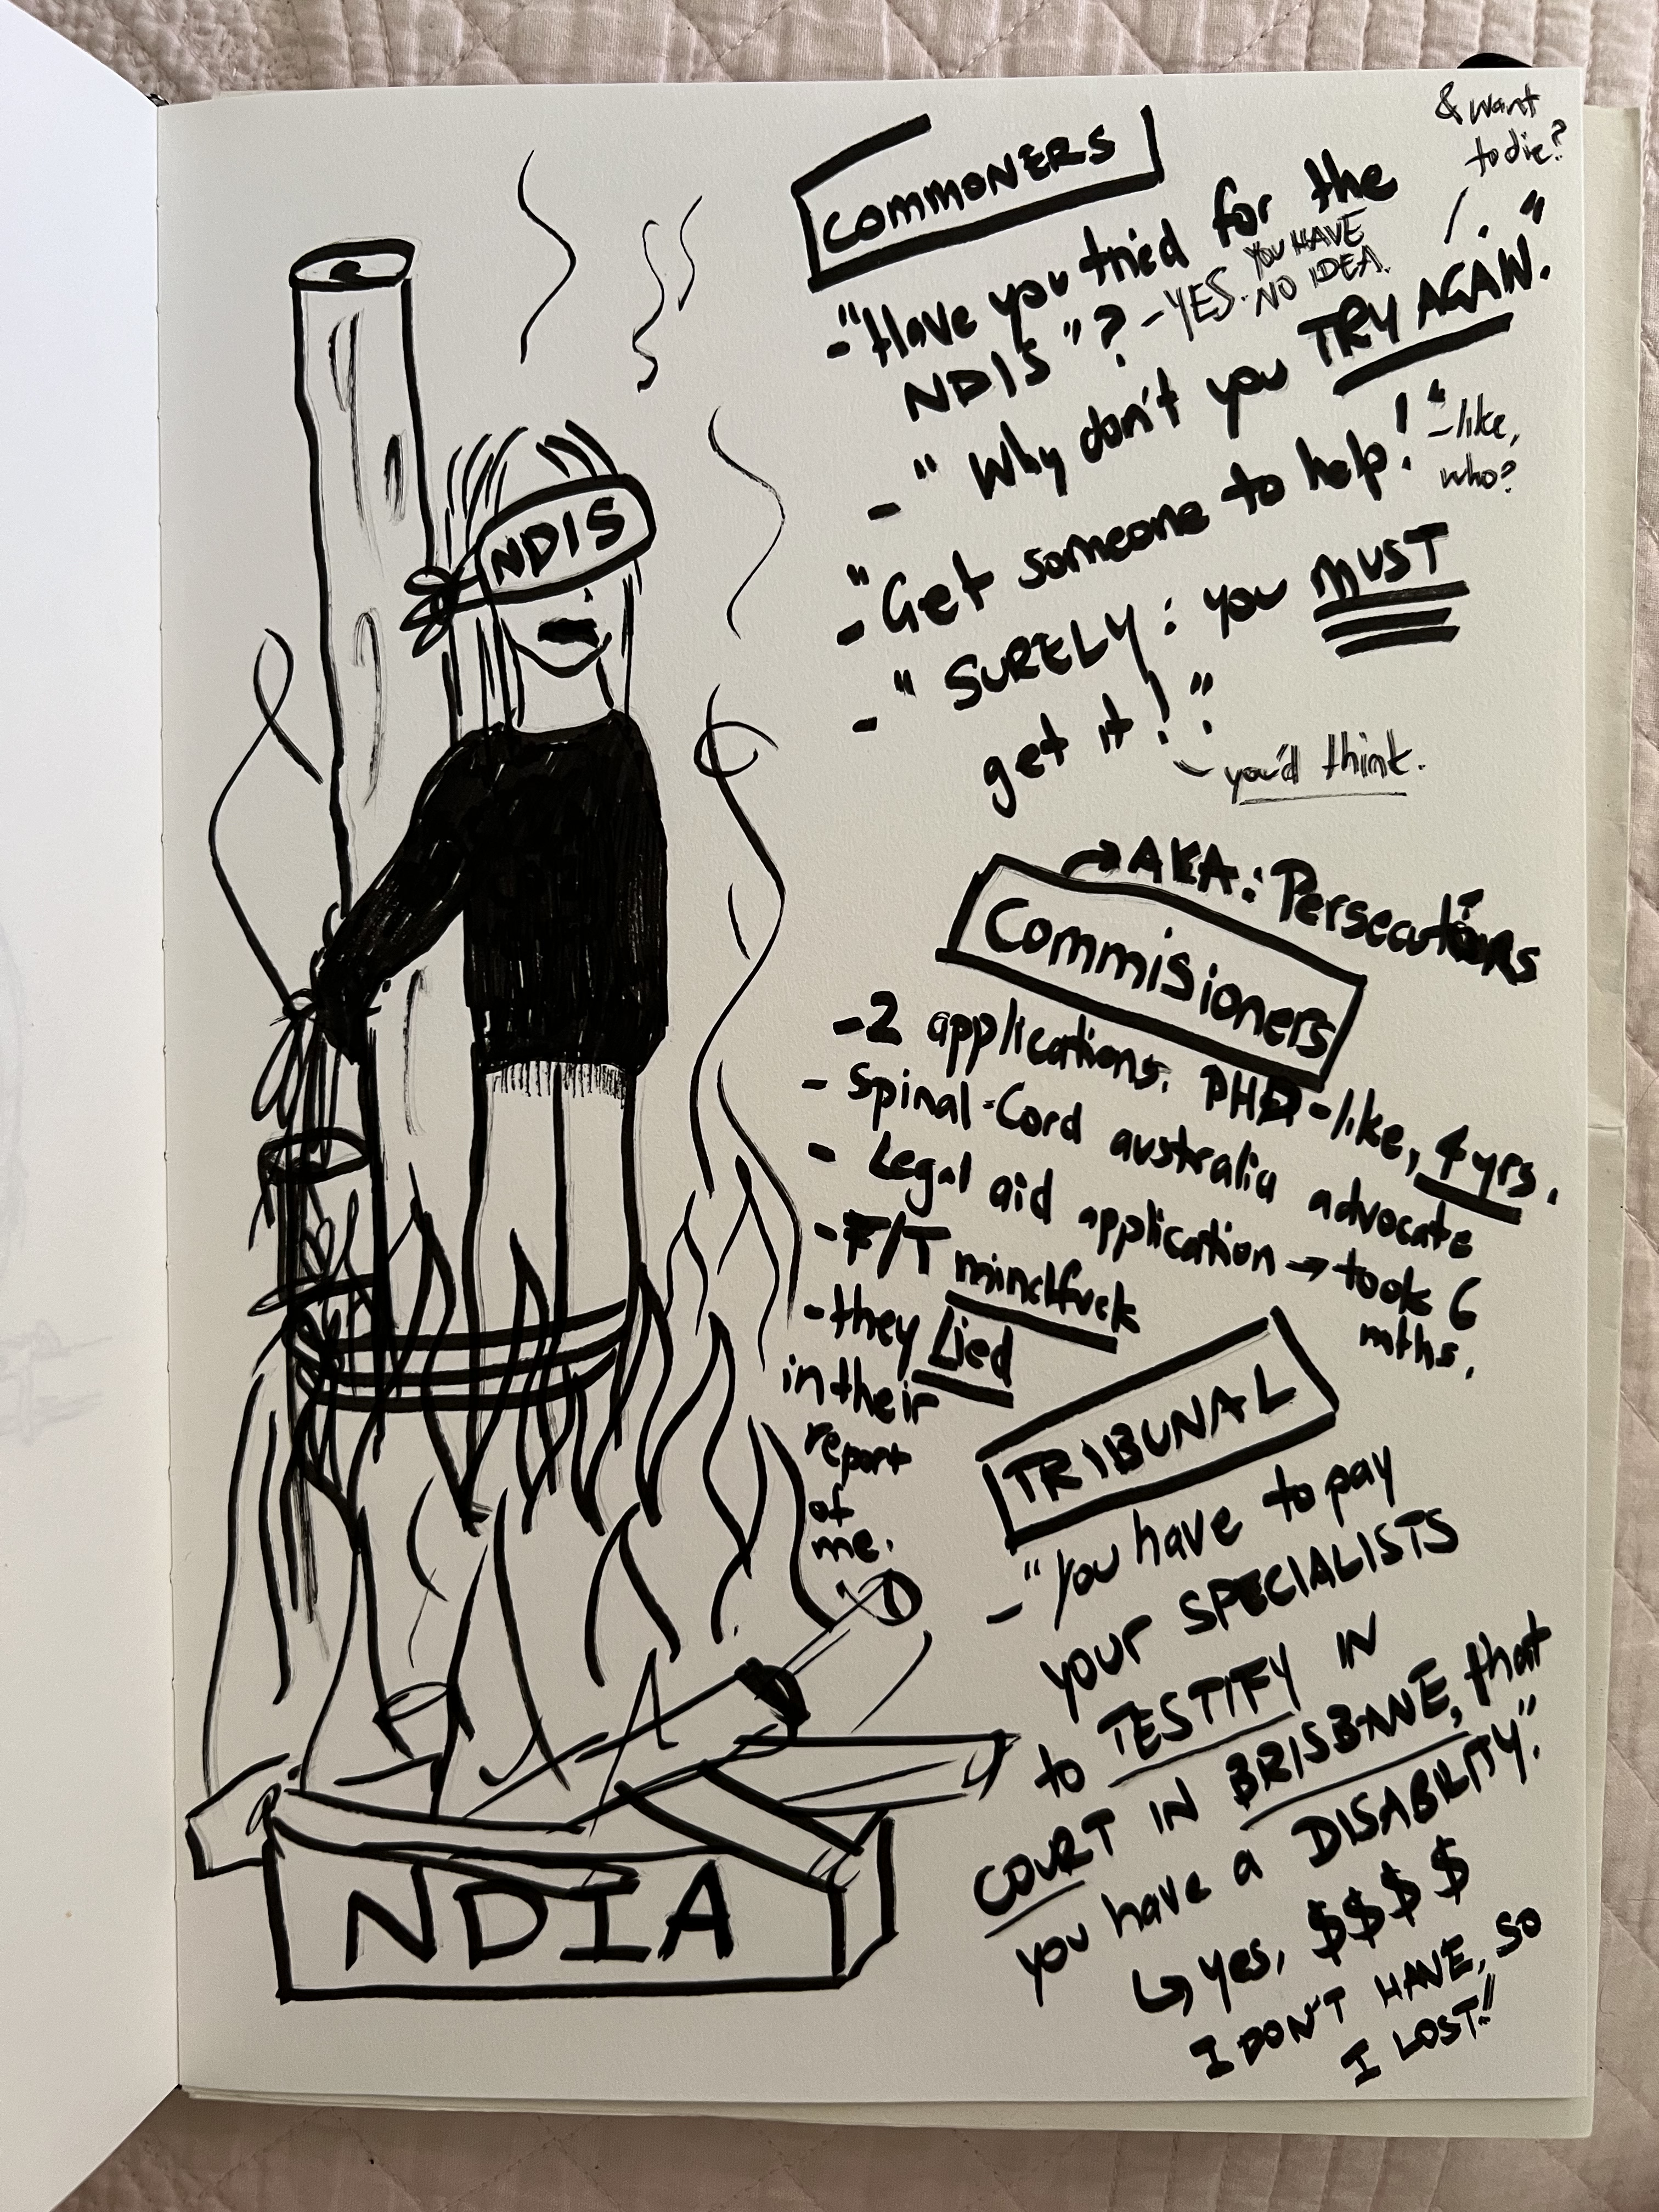 COMMONERS
& want
to die?
-"Have you tried for the
NDIS"? -YES. YOU HAVE
NO IDEA.
-"Why don't you TRY AGAIN."
-"Get someone to help!" -like,
who?
-"SURELY: you MUST
get it!"
- you'd think.
→AKA: Persecutors
Commisioners
-2 applications. PHD-like, 4yrs.
- Spinal-Cord australia advocate
- Legal aid application → took 6
mths.
-F/T mindfuck
-they Lied
in their
report
of
me.
TRIBUNAL
-"You have to pay
your SPECIALISTS
to TESTIFY IN
COURT IN BRISBANE, that
you have a DISABILITY."
↳ yes, $$$$
I DON'T HAVE, SO
I LOST!!
NDIS
NDIA